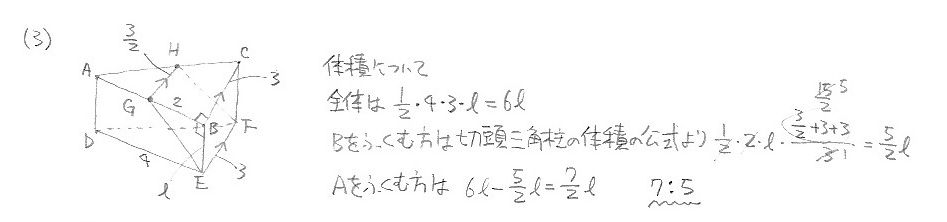 (3)
3/2
H
C
A
3
G
2
B
F
D
4
3
l
E
体積について
全体は 1/2・4・3・l = 6l
Bをふくむ方は切頭三角柱の体積の公式より 1/2・2・l・(3/2+3+3)/3 = 5/2 l
15/2 5
1
Aをふくむ方は 6l - 5/2 l = 7/2 l
7:5